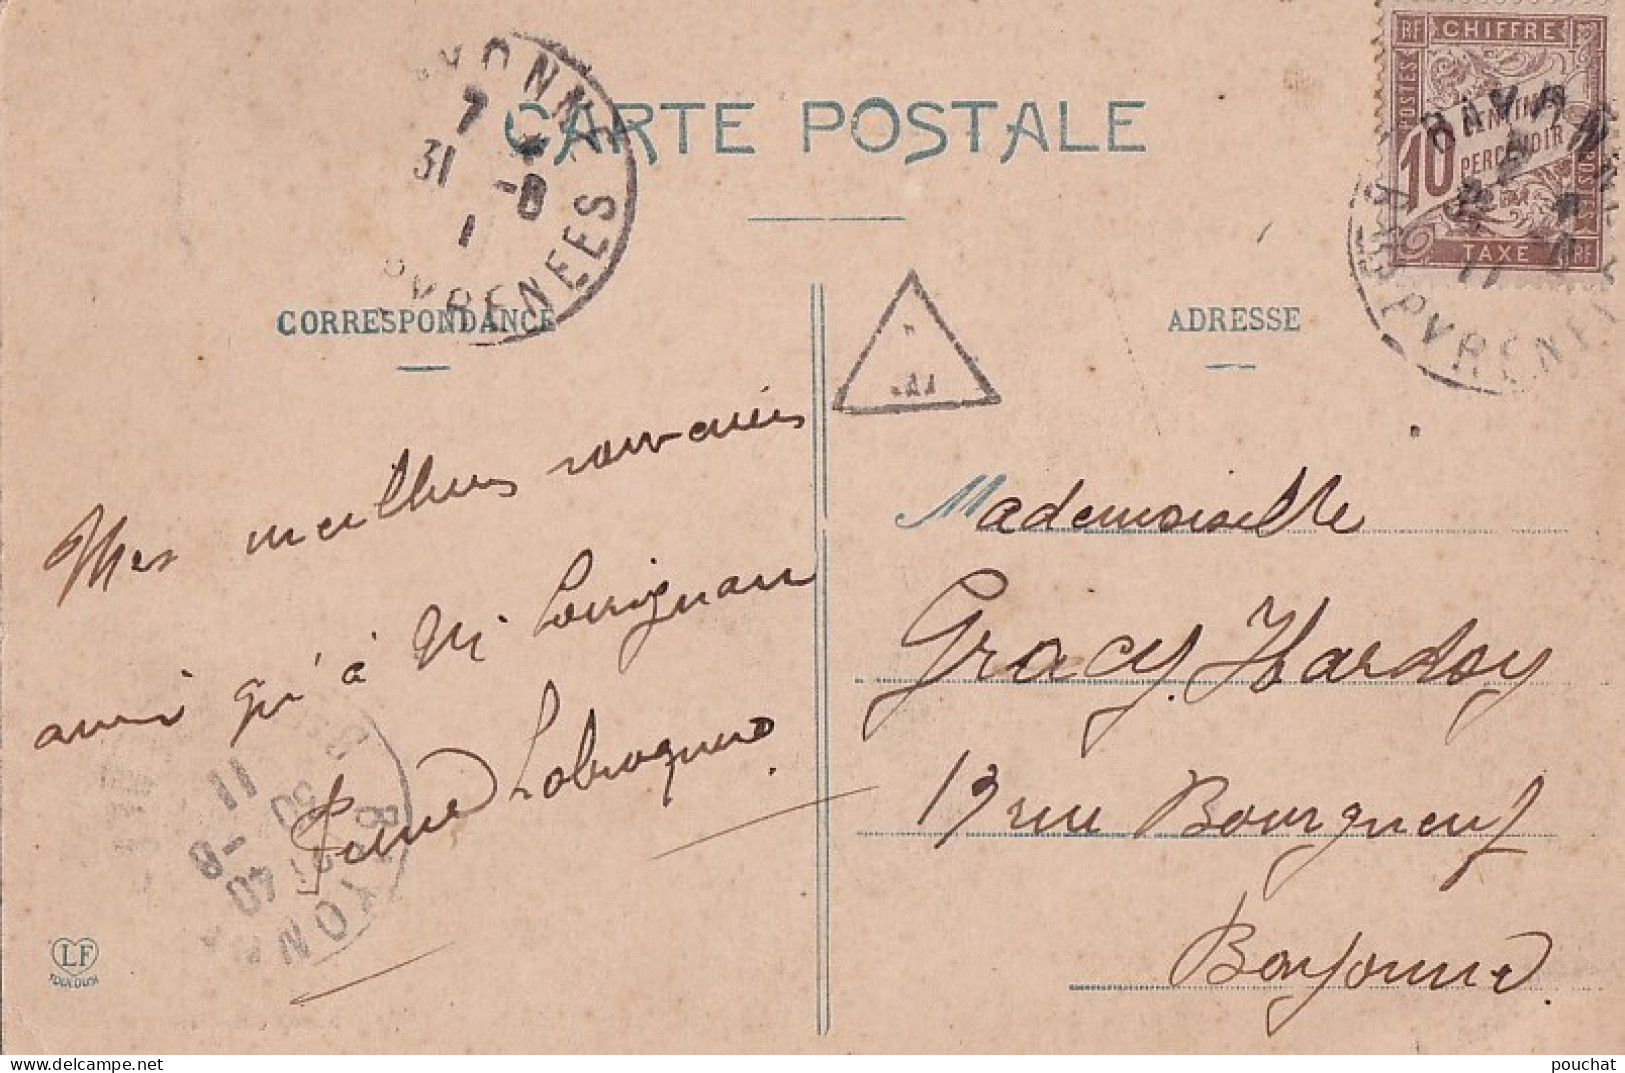 CARTE POSTALE
CORRESPONDANCE
ADRESSE
RF CHIFFRE
POSTES
10 CENTIMES
À PERCEVOIR
POSTES
TAXE RF
YONNE
7
31 -8
1
PYRENEES
BAYONNE
11
Bses PYRÉNÉES
Mes meilleurs souvenirs
ainsi qu'à M
Mademoiselle
Gracy Hardoy
19 rue Bourgneuf
Bayonne.
BAYONNE
11
30 -8
40
LF
TOULOUSE
pouchat